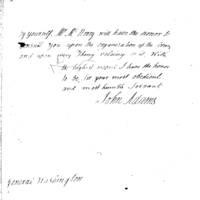 by yourself. Mr. McHenry will have the honor to
consult You upon the organization of the Army
and upon every Thing relating to it. With
the highest respect I have the honor
to be, Sir your most obedient
and most humble Servant
John Adams
General Washington